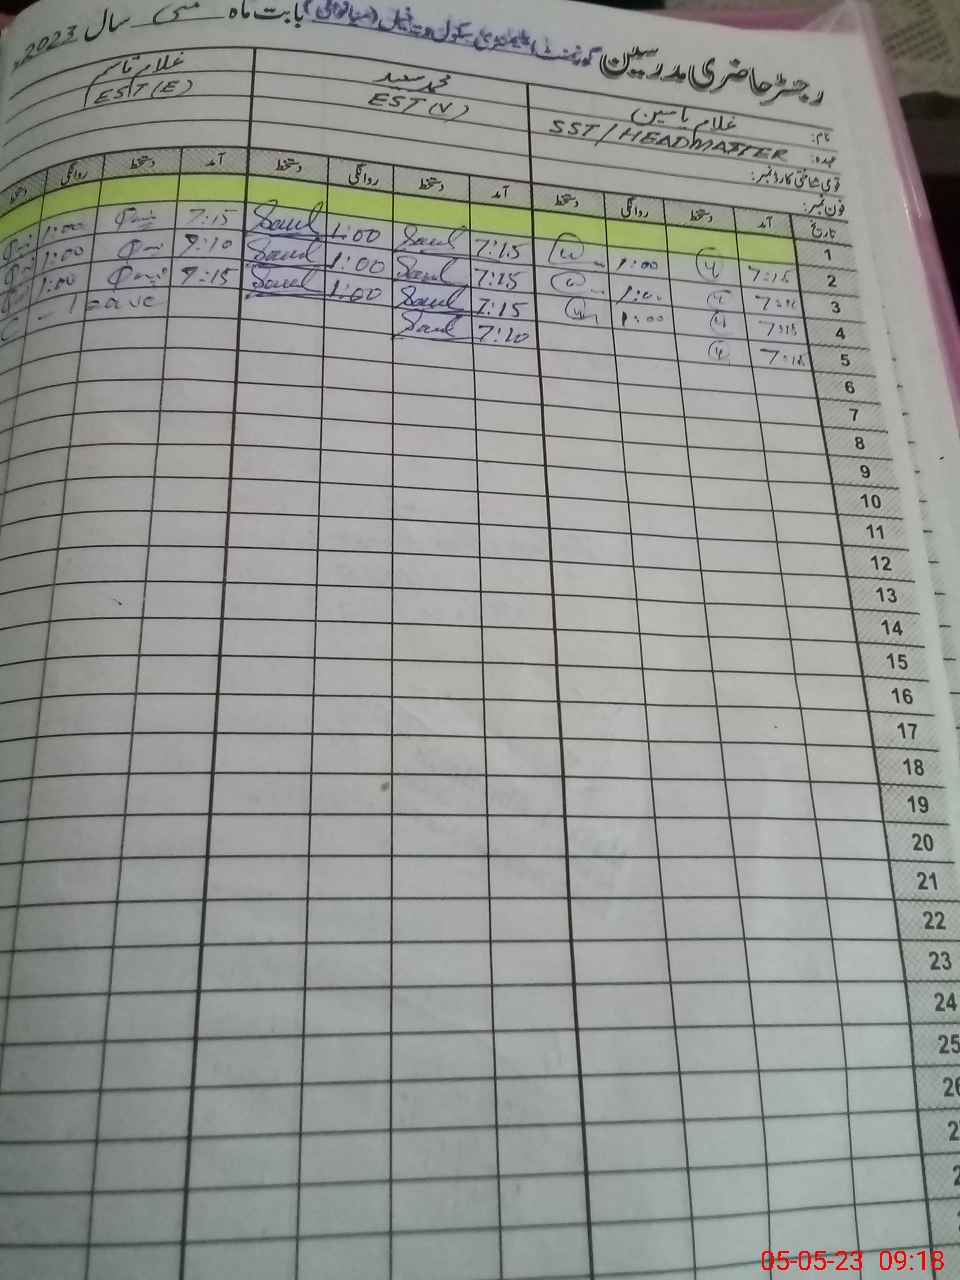 رجسٹر حاضری مدرسین گورنمنٹ سکول بابت ماہ مئی سال 2023ء
نام: غلام یاسین محمد سعید غلام قاسم
عہدہ: SST/HEADMASTER EST(V) EST(E)
قومی شناختی کارڈ نمبر:
فون نمبر:
تاریخ آمد دستخط روانگی دستخط آمد دستخط روانگی دستخط آمد دستخط روانگی دستخط
1
2 7:15 1:00 7:15 Saeed 1:00 Saeed 7:15 1:00
3 1:00 7:15 Saeed 1:00 Saeed 1:00
4 7:15 1:00 7:15 Saeed 1:00 Saeed 1:00
5 7:15 7:10 Saeed Leave
6
7
8
9
10
11
12
13
14
15
16
17
18
19
20
21
22
23
24
25
05-05-23 09:18